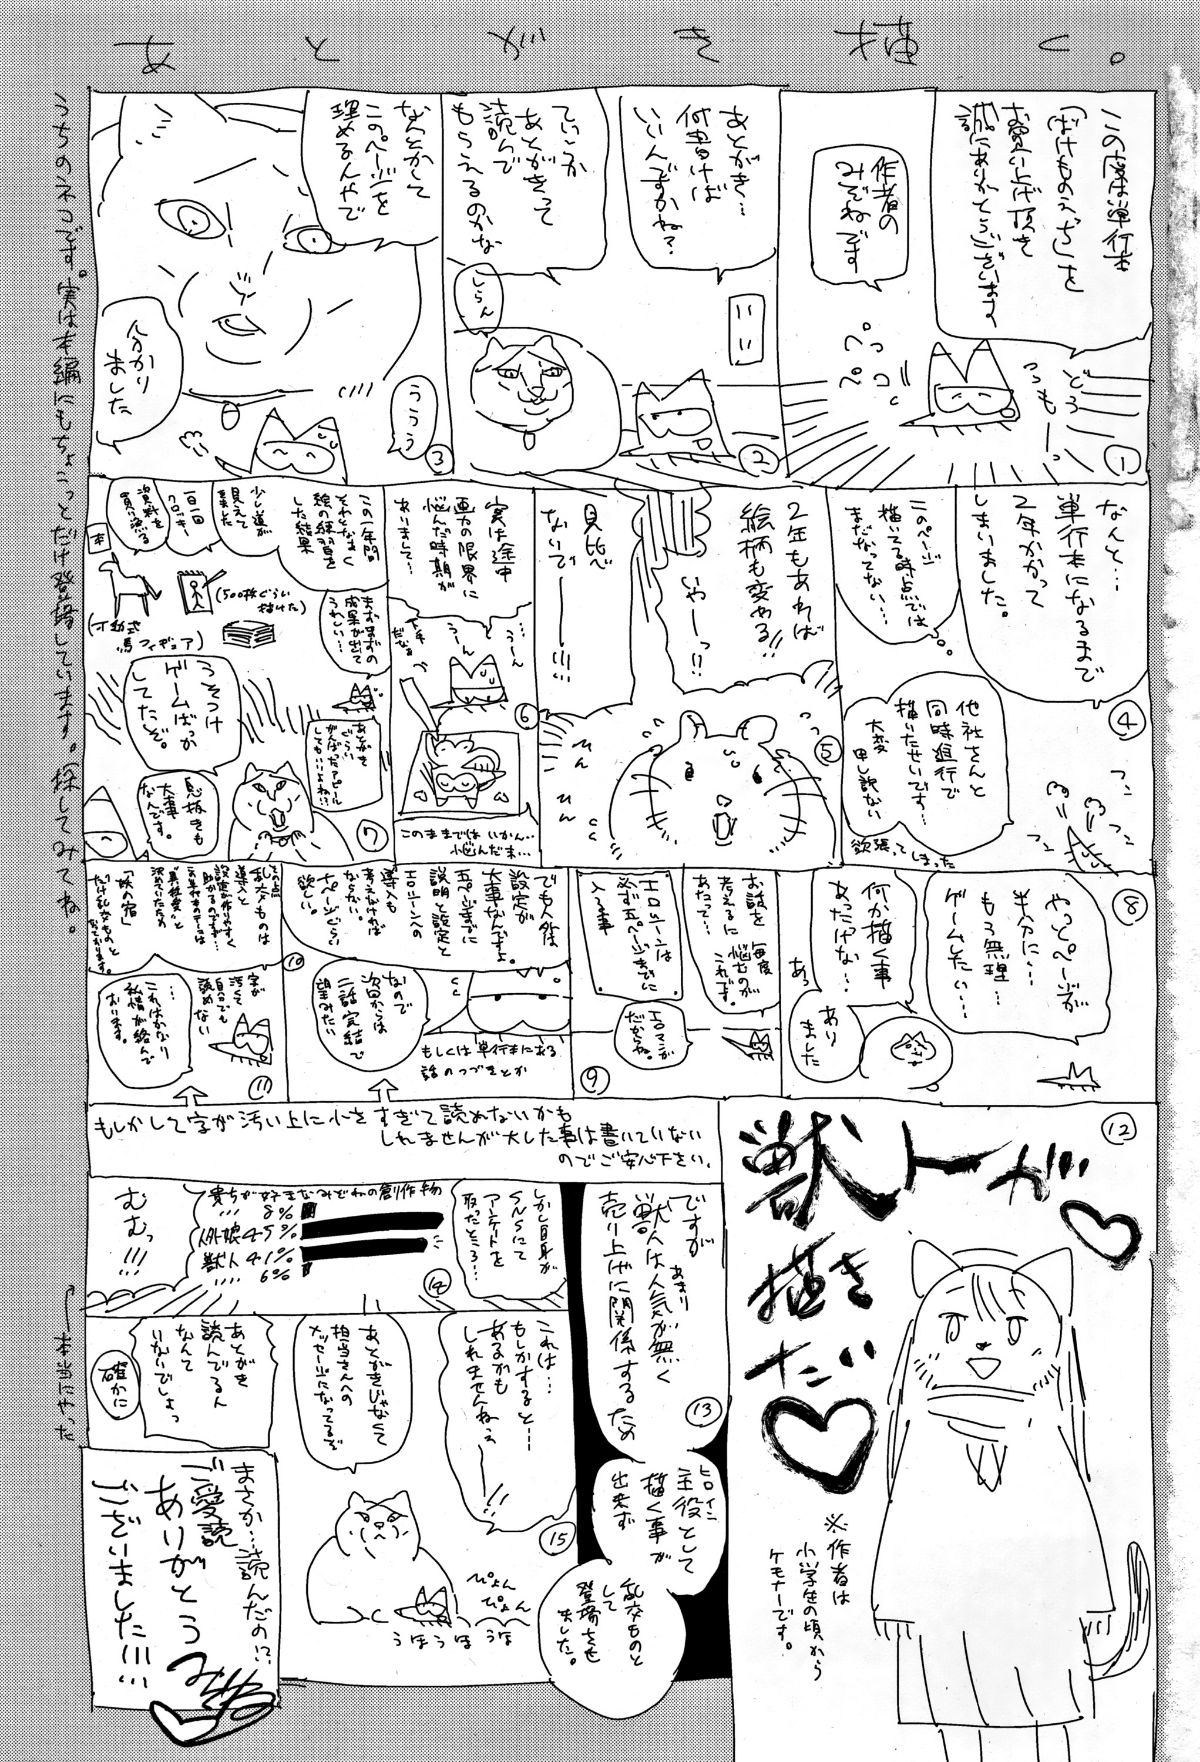 あとがき描く。
この度は単行本
「ばけものえっち」を
お買い上げ頂き
誠にありがとうございます
作者の
みぞねです
どうも〜っ
ペコペコ
①
あとがき…
何書けば
いいんですかね?
ていうか
あとがきって
読んで
もらえるのかな
しらん
②
なんとかして
このページを
埋めるんやで
ううう
分かり
ました
③
なんと…
単行本になるまで
2年かかって
しまいました。
このページ
描いてる時点では
まだなってない…
他社さんと
同時進行で
描いたせいです…
大変
申し訳ない
欲張ってしまった
④
2年もあれば
絵柄も変わる!!
いやーっ!!
見比べ
ないでーーー!!!
ひん
ひん
⑤
実は途中
画力の限界に
悩んだ時期が
ありまして…
…うーん
うーん
下手
だなあ
⑥
このままではいかん…
悩んだ末…
この一年間
それとなく
絵の練習を
した結果
少し道が
見えて
きました
一日一回
クロッキー
資料を
買い漁る
本
(500枚ぐらい
描けた)
(可動式
馬フィギュア)
まずまずの
成果が出て
うれしい…
あとがき
ぐらい
がんばったアピール
してもいいよね…!
うそつけ
ゲームばっか
してたぞ。
息抜きも
大事
なんです。
⑦
やっとページが
半分に…
もう無理…
ゲームしたい…
何か描く事
あったけな…
あっ
あり
ました
⑧
お話を
考えるに
あたって…
毎度
悩むのが
これです。
エロシーンは
必ず五ページまでに
入る事
エロマンガ
だからね。
⑨
でも人外は
設定が
大事なんですよ。
五ページまでに
説明と設定と
エロシーンへの
導入も
考えなければ
ならない。
十ページぐらい
欲しい。
なので
次回からは
二話完結で
望みたい
もしくは単行本にある
話のつづきとか
⑩
その点
乱交ものは
導入と
設定が作りやすく
助かるのです…
「妖の宿」
だけ乱交ものと
なっております。
…
これはかなり
私情が絡んで
おります。
字が
汚くて
自分でも
読めない
⑪
もしかして字が汚い上に小さすぎて読めないかも
しれませんが大した事は書いていない
のでご安心下さい。
⑫
獣トが
描きたい
※作者は
小学生の頃から
ケモナーです。
ですが
獣人はあまり
人気が無く
売り上げに関係するため
⑬
主役として
ヒロイン
描く事が
出来ず
乱交ものと
して
登場させ
ました。
しかし自身が
SNSにて
アンケートを
取ったところ…
貴方が好きなみぞねの創作物
8%
人外娘45%
獣人41%
6%
むむっ!!!
⑭
これは…
もしかすると…
あるかも
しれませんねぇ
ーーー!!
⑮
あとがきじゃなくて
担当さんへの
メッセージになってるぞ
ぴょん
ぴょん
うほうほ
うほ
あとがき
読んでるん
なんて
いないでしょっ
確かに
まさか…読んだの!?
ご愛読
ありがとう
ございました!!!
みぞね
うちのネコです。実は本編にもちょこっとだけ登場しています。探してみてね。
本当にやった